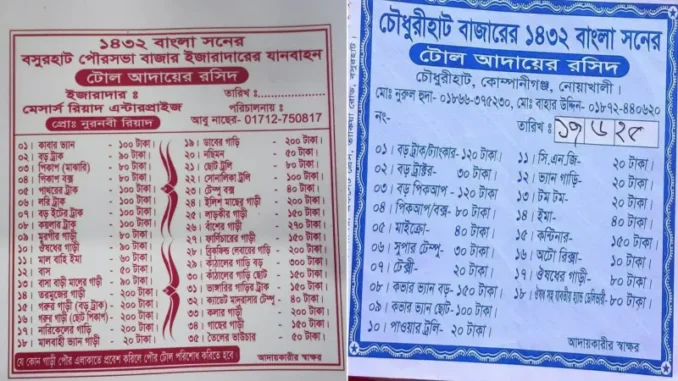 ১৪৩২ বাংলা সনের
বসুরহাট পৌরসভা বাজার ইজারাদারের যানবাহন
টোল আদায়ের রসিদ
ইজারাদার ঃ
তারিখ ঃ
মেসার্স রিয়াদ এন্টারপ্রাইজ
পরিচালনায় ঃ
প্রোঃ নুরনবী রিয়াদ
আবু নাছের- 01712-750817
০১। কাবার ভ্যান - ১০০ টাকা।
০২। বড় ট্রাক - ৯০ টাকা।
০৩। পিকাপ (মাঝারি) - ৮০ টাকা।
০৪। পিকাপ বক্স - ৮০ টাকা।
০৫। পাথরের টাক - ১০০ টাকা।
০৬। লরি ট্রাক - ১০০ টাকা।
০৭। বড় ইটের ট্রাক - ১০০ টাকা।
০৮। কয়লার ট্রাক - ১০০ টাকা।
০৯। মুরগীর গাড়ী - ৮০ টাকা।
১০। ঔষধের গাড়ী - ৯০ টাকা।
১১। মাল বাহি ইমা - ৬০ টাকা।
১২। বাস - ৫০ টাকা।
১৩। বাসা বাড়ী মালের গাড়ী - ২০০ টাকা।
১৪। তরমুজের গাড়ী - ২০০ টাকা।
১৫। গরুর গাড়ী (বড় ট্রাক) - ২০০ টাকা।
১৬। গরুর গাড়ী (ছোট পিকাপ) - ২০০ টাকা।
১৭। নারিকেলের গাড়ি - ২০০ টাকা।
১৮। মালবাহী ভ্যান গাড়ী - ২০ টাকা।
১৯। ডাবের গাড়ি - ২০০ টাকা।
২০। নছিমন - ৫০ টাকা।
২১। ছোট ট্রলি - ৮০ টাকা।
২২। সোনালিকা ট্রলি - ১০০ টাকা।
২৩। টেম্পু বক্স - ৪০ টাকা।
২৪। ইলিশ মাছের গাড়ী - ২০০ টাকা।
২৫। লাড়কীর গাড়ী - ১৫০ টাকা।
২৬। বাশের গাড়ী - ২৭০ টাকা।
২৭। ফার্ণিচারের গাড়ী - ১৫০ টাকা।
২৮। গাড়ী - ২০০ টাকা।
২৯। কাঠালের গাড়ি বড় - ৩০০ টাকা।
৩০। কাঠালের গাড়ি ছোট - ১৫০ টাকা।
৩১। ভাঙ্গারির গাড়ীর ট্রাক - ১৫০ টাকা।
৩২। ক্যাডেট মাদরাসার টেম্পু - ৪০ টাকা।
৩৩। কলার গাড়ী - ২০০ টাকা।
৩৪। গাছের গাড়ী - ১৫০ টাকা।
৩৫। তৈলের ভাউচার - ৫০ টাকা।
যে কোন গাড়ী পৌর এলাকাতে প্রবেশ করিলে পৌর টোল পরিশোধ করিতে হবে
আদায়কারীর স্বাক্ষর
চৌধুরীহাট বাজারের ১৪৩২ বাংলা সনের
টোল আদায়ের রসিদ
চৌধুরীহাট, কোম্পানীগঞ্জ, নোয়াখালী।
মোঃ নুরুল হুদা- ০১৮৬৬-৩৭৫২৩০, মোঃ বাহার উদ্দিন- ০১৮৭২-৪৪০৬২০
নং-
তারিখ ঃ ১৭ ৬ ২৫
০১। বড় ট্রাক/ট্যাংকার- ১২০ টাকা।
০২। বড় ট্রাক্টর- ৩০ টাকা।
০৩। বড় পিকআপ - ১২০ টাকা।
০৪। পিকআপ/বক্স- ৮০ টাকা।
০৫। মাইক্রো- ৪০ টাকা।
০৬। সুপার টেম্পু- ৩০ টাকা।
০৭। টেক্সী- ২০ টাকা।
০৮। কভার ভ্যান বড়- ১৫০ টাকা।
০৯। কভার ভ্যান ছোট-১০০ টাকা।
১০। পাওয়ার ট্রলি- ২০ টাকা।
১১। সি.এন.জি- ২০ টাকা।
১২। ভ্যান গাড়ি- ২০ টাকা।
১৩। টম টম- ২০ টাকা।
১৪। ইমা- ৪০ টাকা।
১৫। কন্টিনার- ১৫০ টাকা।
১৬। অটো রিক্সা- ১০ টাকা।
১৭। ঔষধের গাড়ী- ৮০ টাকা।
১৮। ঔষধ সহ যাবতীয় হ্যান্ড ডেলিভারী- ৮০ টাকা।
আদায়কারীর স্বাক্ষর